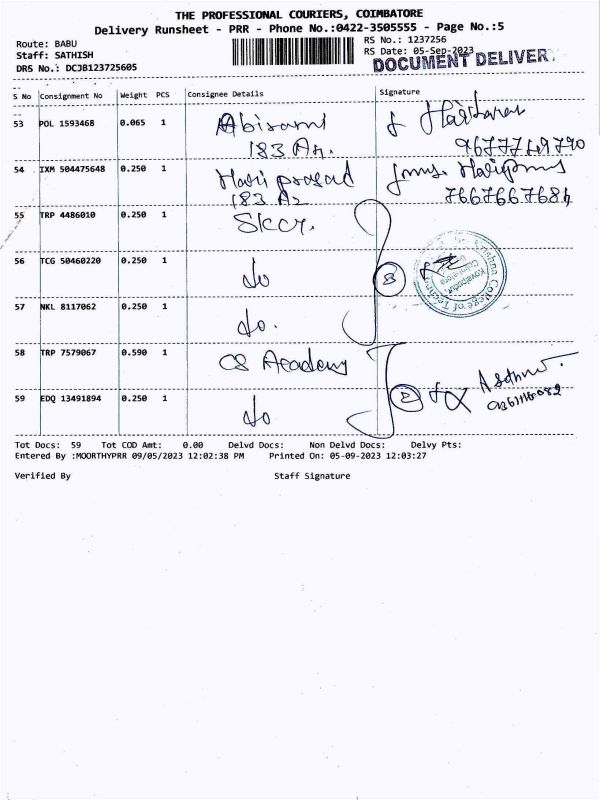 THE PROFESSIONAL COURIERS, COIMBATORE
Delivery Runsheet - PRR - Phone No.:0422-3505555 - Page No.:5
Route: BABU
RS No.: 1237256
Staff: SATHISH
RS Date: 05-Sep-2023
DRS No.: DCJB123725605
DOCUMENT DELIVER
S No Consignment No Weight PCS Consignee Details Signature
53 POL 1593468 0.065 1 Abirami
183 An.
54 IXM 504475648 0.250 1 Hari prasad
183 Az
7667667684
55 TRP 4486010 0.250 1 Skcr.
56 TCG 50460220 0.250 1 do
57 NKL 8117062 0.250 1 do.
58 TRP 7579067 0.590 1 CS Academy
59 EDQ 13491894 0.250 1 do
Tot Docs: 59 Tot COD Amt: 0.00 Delvd Docs: Non Delvd Docs: Delvy Pts:
Entered By :MOORTHYPRR 09/05/2023 12:02:38 PM Printed On: 05-09-2023 12:03:27
Verified By Staff Signature